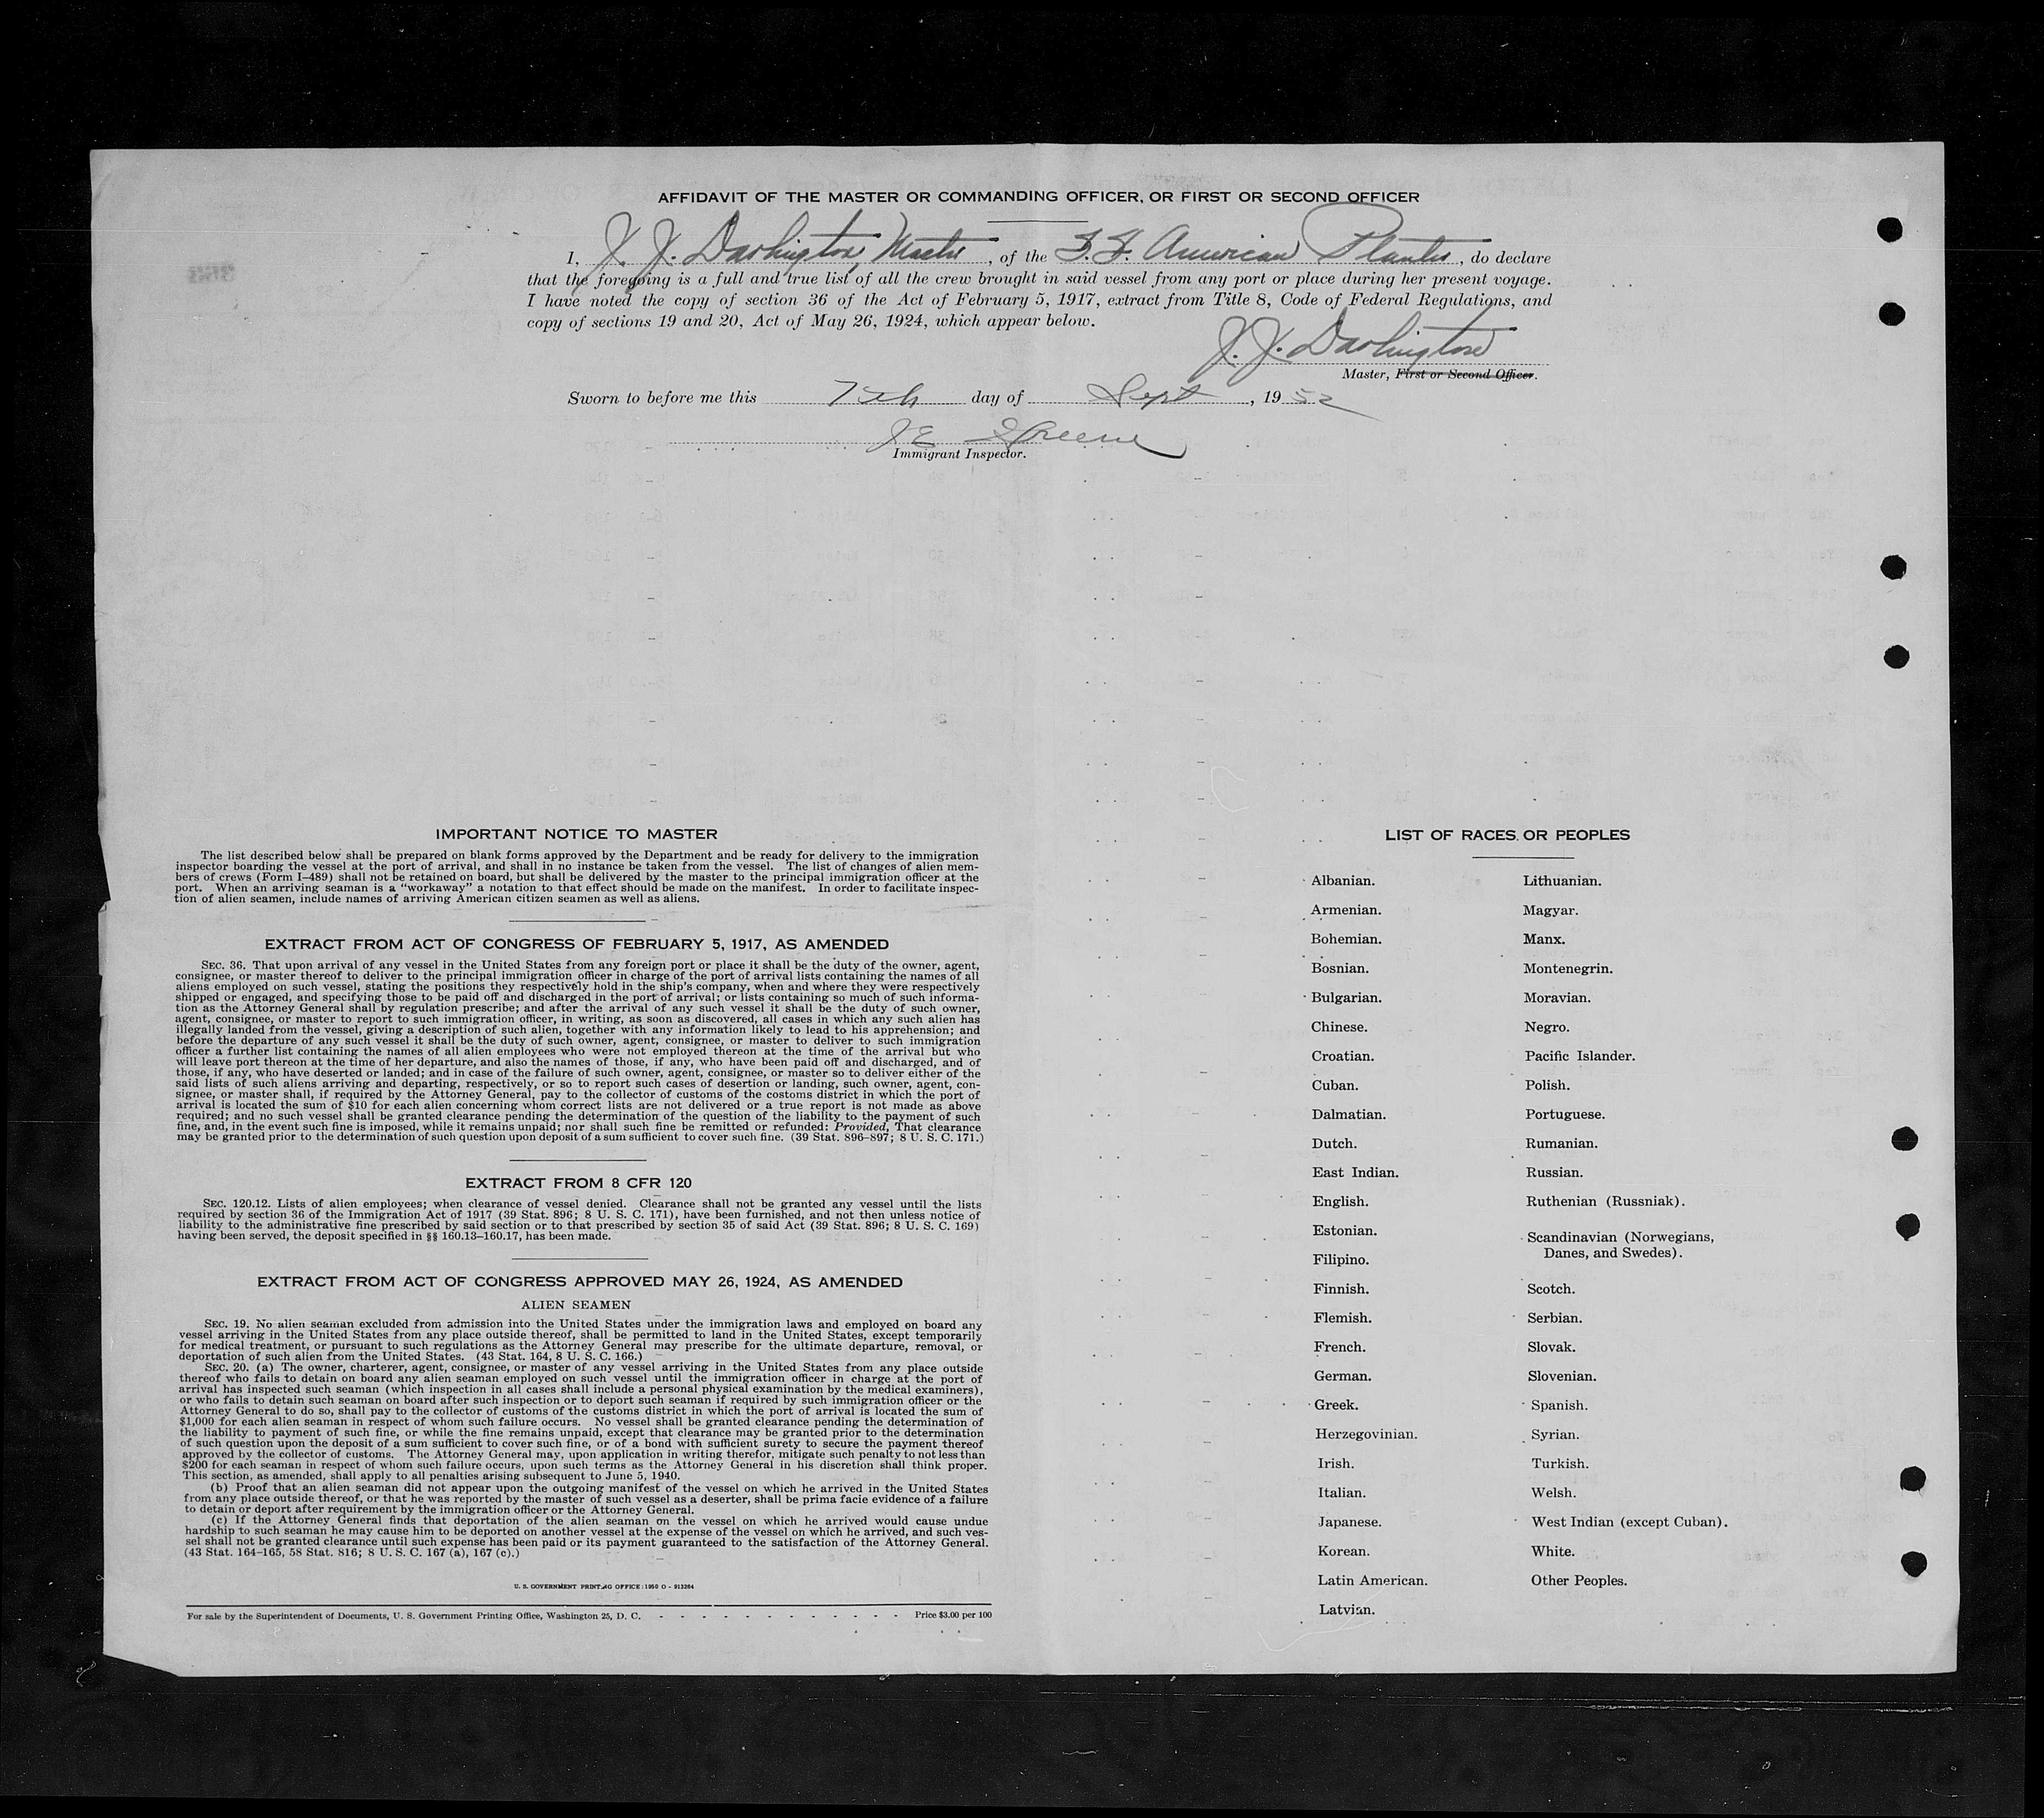 AFFIDAVIT OF THE MASTER OR COMMANDING OFFICER, OR FIRST OR SECOND OFFICER
I, J. J. Darlington, Master, of the S.S. American Planter, do declare
that the foregoing is a full and true list of all the crew brought in said vessel from any port or place during her present voyage.
I have noted the copy of section 36 of the Act of February 5, 1917, extract from Title 8, Code of Federal Regulations, and
copy of sections 19 and 20, Act of May 26, 1924, which appear below.
J. J. Darlington
Master, First or Second Officer.
Sworn to before me this 7th day of Sept, 1952
J E Greene
Immigrant Inspector.
IMPORTANT NOTICE TO MASTER
The list described below shall be prepared on blank forms approved by the Department and be ready for delivery to the immigration
inspector boarding the vessel at the port of arrival, and shall in no instance be taken from the vessel. The list of changes of alien mem-
bers of crews (Form I-489) shall not be retained on board, but shall be delivered by the master to the principal immigration officer at the
port. When an arriving seaman is a "workaway" a notation to that effect should be made on the manifest. In order to facilitate inspec-
tion of alien seamen, include names of arriving American citizen seamen as well as aliens.
EXTRACT FROM ACT OF CONGRESS OF FEBRUARY 5, 1917, AS AMENDED
SEC. 36. That upon arrival of any vessel in the United States from any foreign port or place it shall be the duty of the owner, agent,
consignee, or master thereof to deliver to the principal immigration officer in charge of the port of arrival lists containing the names of all
aliens employed on such vessel, stating the positions they respectively hold in the ship's company, when and where they were respectively
shipped or engaged, and specifying those to be paid off and discharged in the port of arrival; or lists containing so much of such informa-
tion as the Attorney General shall by regulation prescribe; and after the arrival of any such vessel it shall be the duty of such owner,
agent, consignee, or master to report to such immigration officer, in writing, as soon as discovered, all cases in which any such alien has
illegally landed from the vessel, giving a description of such alien, together with any information likely to lead to his apprehension; and
before the departure of any such vessel it shall be the duty of such owner, agent, consignee, or master to deliver to such immigration
officer a further list containing the names of all alien employees who were not employed thereon at the time of the arrival but who
will leave port thereon at the time of her departure, and also the names of those, if any, who have been paid off and discharged, and of
those, if any, who have deserted or landed; and in case of the failure of such owner, agent, consignee, or master so to deliver either of the
said lists of such aliens arriving and departing, respectively, or so to report such cases of desertion or landing, such owner, agent, con-
signee, or master shall, if required by the Attorney General, pay to the collector of customs of the costoms district in which the port of
arrival is located the sum of $10 for each alien concerning whom correct lists are not delivered or a true report is not made as above
required; and no such vessel shall be granted clearance pending the determination of the question of the liability to the payment of such
fine, and, in the event such fine is imposed, while it remains unpaid; nor shall such fine be remitted or refunded: Provided, That clearance
may be granted prior to the determination of such question upon deposit of a sum sufficient to cover such fine. (39 Stat. 896-897; 8 U. S. C. 171.)
EXTRACT FROM 8 CFR 120
SEC. 120.12. Lists of alien employees; when clearance of vessel denied. Clearance shall not be granted any vessel until the lists
required by section 36 of the Immigration Act of 1917 (39 Stat. 896; 8 U. S. C. 171), have been furnished, and not then unless notice of
liability to the administrative fine prescribed by said section or to that prescribed by section 35 of said Act (39 Stat. 896; 8 U. S. C. 169)
having been served, the deposit specified in §§ 160.13-160.17, has been made.
EXTRACT FROM ACT OF CONGRESS APPROVED MAY 26, 1924, AS AMENDED
ALIEN SEAMEN
SEC. 19. No alien seaman excluded from admission into the United States under the immigration laws and employed on board any
vessel arriving in the United States from any place outside thereof, shall be permitted to land in the United States, except temporarily
for medical treatment, or pursuant to such regulations as the Attorney General may prescribe for the ultimate departure, removal, or
deportation of such alien from the United States. (43 Stat. 164, 8 U. S. C. 166.)
SEC. 20. (a) The owner, charterer, agent, consignee, or master of any vessel arriving in the United States from any place outside
thereof who fails to detain on board any alien seaman employed on such vessel until the immigration officer in charge at the port of
arrival has inspected such seaman (which inspection in all cases shall include a personal physical examination by the medical examiners),
or who fails to detain such seaman on board after such inspection or to deport such seaman if required by such immigration officer or the
Attorney General to do so, shall pay to the collector of customs of the customs district in which the port of arrival is located the sum of
$1,000 for each alien seaman in respect of whom such failure occurs. No vessel shall be granted clearance pending the determination of
the liability to payment of such fine, or while the fine remains unpaid, except that clearance may be granted prior to the determination
of such question upon the deposit of a sum sufficient to cover such fine, or of a bond with sufficient surety to secure the payment thereof
approved by the collector of customs. The Attorney General may, upon application in writing therefor, mitigate such penalty to not less than
$200 for each seaman in respect of whom such failure occurs, upon such terms as the Attorney General in his discretion shall think proper.
This section, as amended, shall apply to all penalties arising subsequent to June 5, 1940.
(b) Proof that an alien seaman did not appear upon the outgoing manifest of the vessel on which he arrived in the United States
from any place outside thereof, or that he was reported by the master of such vessel as a deserter, shall be prima facie evidence of a failure
to detain or deport after requirement by the immigration officer or the Attorney General.
(c) If the Attorney General finds that deportation of the alien seaman on the vessel on which he arrived would cause undue
hardship to such seaman he may cause him to be deported on another vessel at the expense of the vessel on which he arrived, and such ves-
sel shall not be granted clearance until such expense has been paid or its payment guaranteed to the satisfaction of the Attorney General.
(43 Stat. 164-165, 58 Stat. 816; 8 U. S. C. 167 (a), 167 (c).)
U. S. GOVERNMENT PRINTING OFFICE: 1950 O - 913264
For sale by the Superintendent of Documents, U. S. Government Printing Office, Washington 25, D. C. - - - - - - - - - - - - Price $3.00 per 100
LIST OF RACES OR PEOPLES
Albanian.
Armenian.
Bohemian.
Bosnian.
Bulgarian.
Chinese.
Croatian.
Cuban.
Dalmatian.
Dutch.
East Indian.
English.
Estonian.
Filipino.
Finnish.
Flemish.
French.
German.
Greek.
Herzegovinian.
Irish.
Italian.
Japanese.
Korean.
Latin American.
Latvian.
Lithuanian.
Magyar.
Manx.
Montenegrin.
Moravian.
Negro.
Pacific Islander.
Polish.
Portuguese.
Rumanian.
Russian.
Ruthenian (Russniak).
Scandinavian (Norwegians,
Danes, and Swedes).
Scotch.
Serbian.
Slovak.
Slovenian.
Spanish.
Syrian.
Turkish.
Welsh.
West Indian (except Cuban).
White.
Other Peoples.